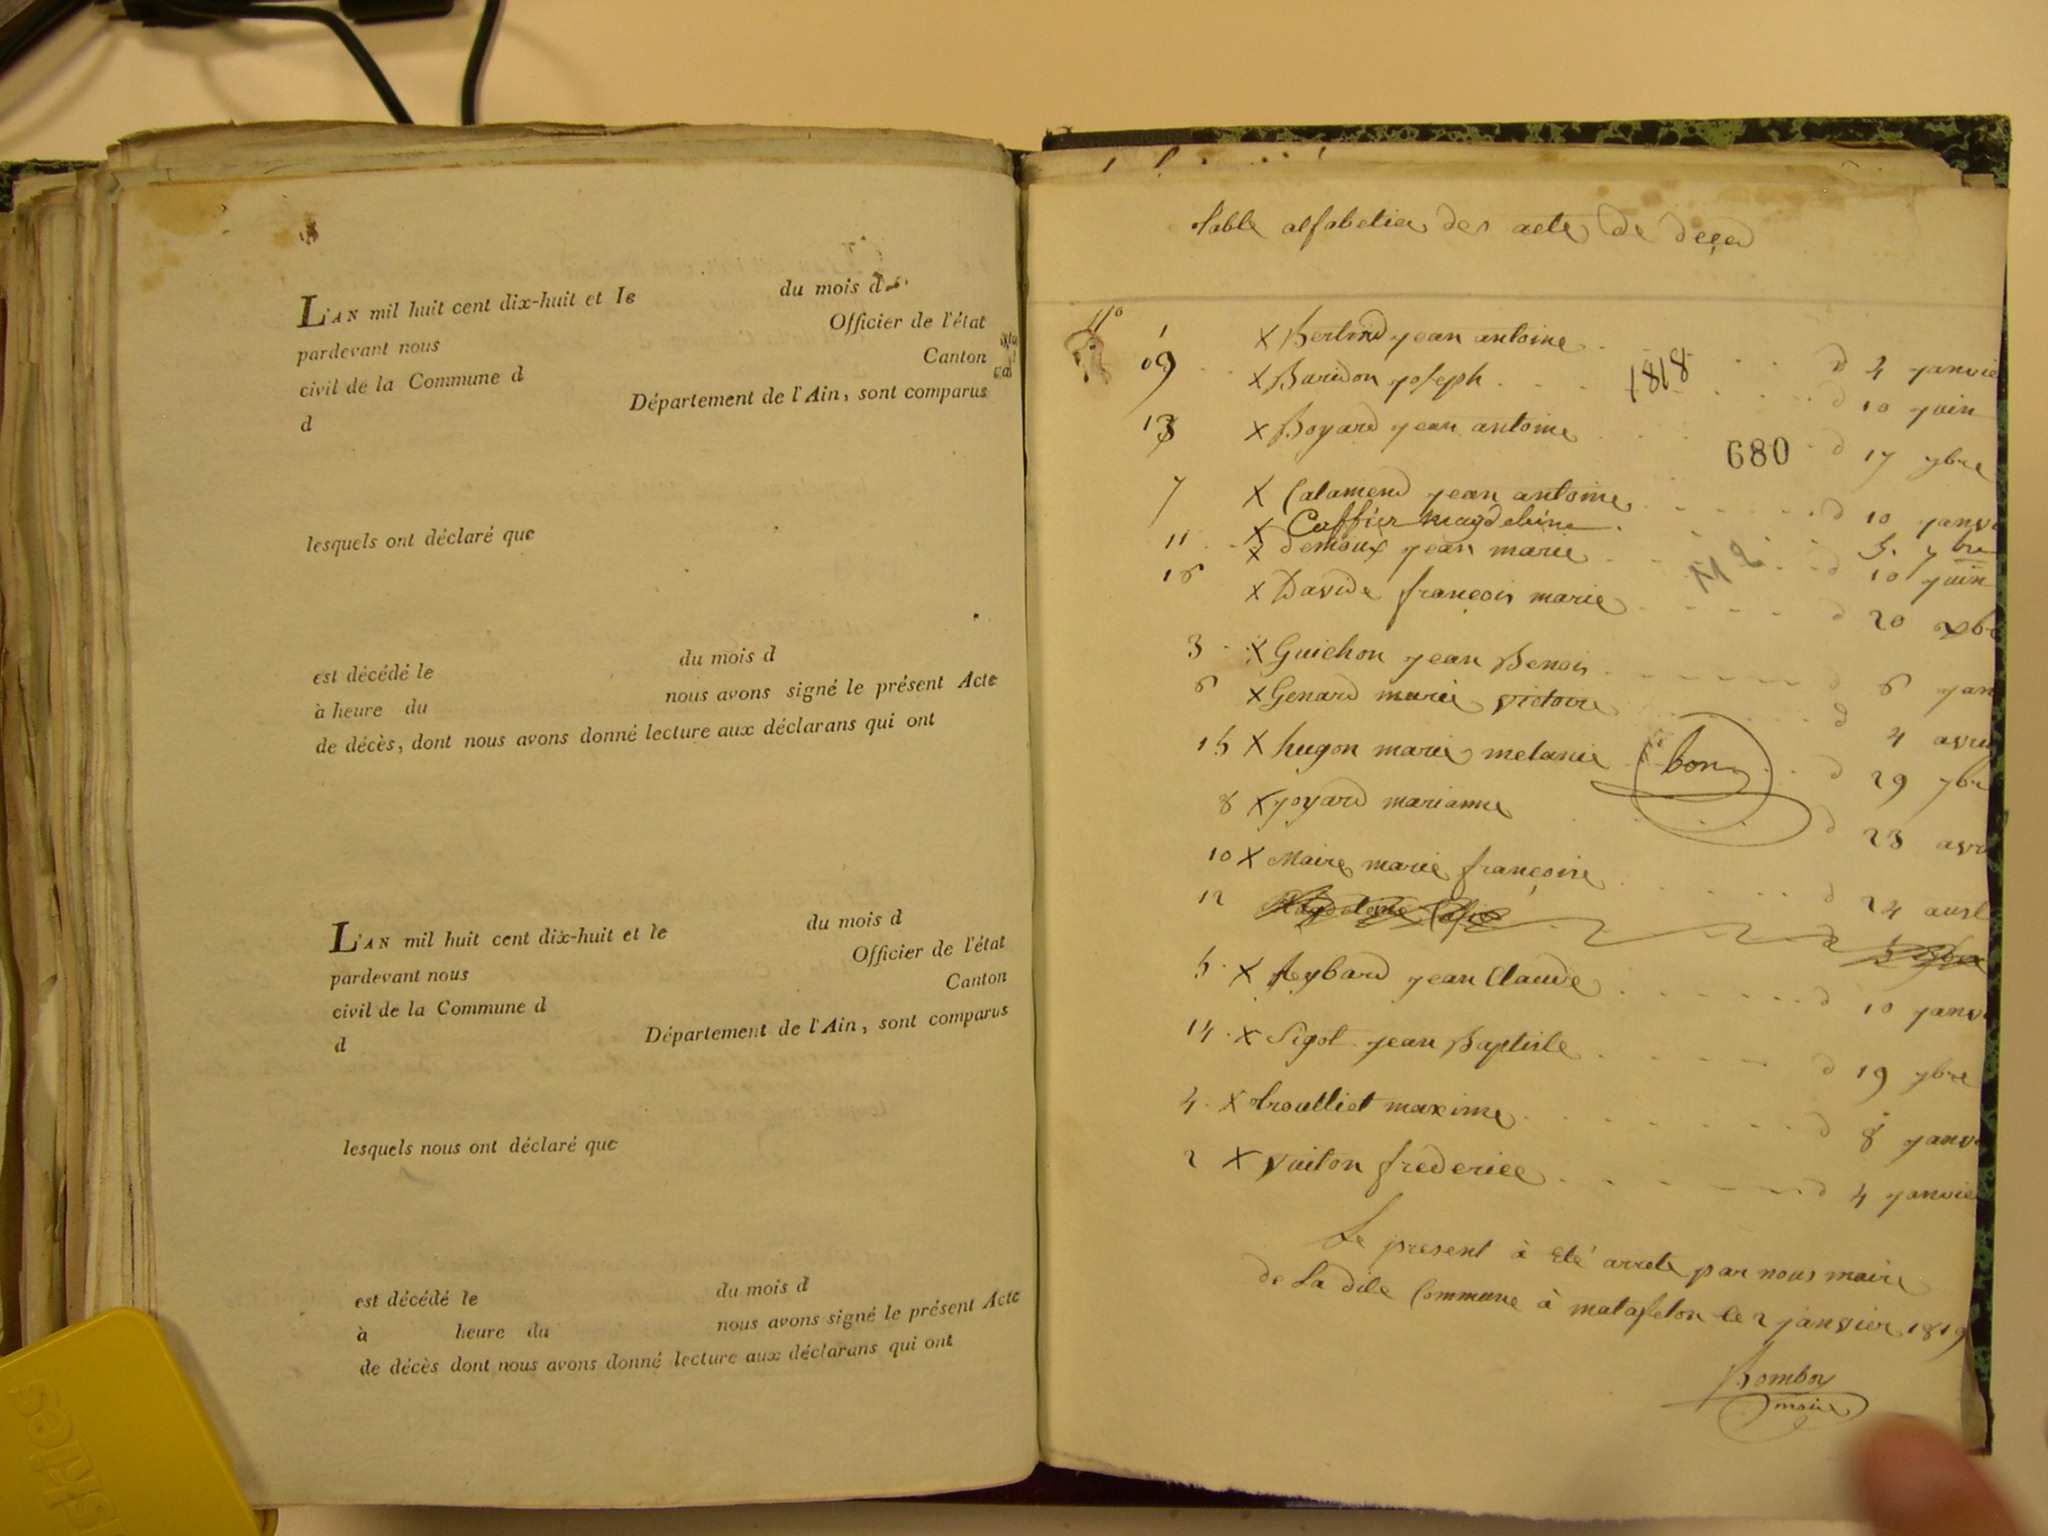 L'AN mil huit cent dix-huit et le du mois d
pardevant nous Officier de l'état
civil de la Commune d Canton
d Département de l'Ain, sont comparus
lesquels ont déclaré que
est décédé le du mois d
à heure du nous avons signé le présent Acte
de décès, dont nous avons donné lecture aux déclarans qui ont
L'AN mil huit cent dix-huit et le du mois d
pardevant nous Officier de l'état
civil de la Commune d Canton
d Département de l'Ain, sont comparus
lesquels nous ont déclaré que
est décédé le du mois d
à heure du nous avons signé le présent Acte
de décès dont nous avons donné lecture aux déclarans qui ont
table alfabetica des acte de deçed
N°
1 x Bertrand jean antoine d 4 janvie
09 x Baridon joseph 1818 d 10 juin
13 x Boyard jean antoine d 17 7bre
680
7 x Catamend jean antoine d 10 janv
x Caffier magdeleine 5 7bre
11 x demoux jean marie d 10 juin
16 x Davide françois marie d 20 xb
3 x Guichon jean Benois d 6 jan
6 x Genard marie victoire d 4 avri
15 x hugon marie melanie bon d 29 7br
8 x joyard marianne d 23 avr
10 x Maire marie françoise d 24 aust
12
5 x Reybard jean Claude d 10 janv
14 x Sigot jean Baptiste d 19 7bre
4 x trouilliet maxime d 8 janv
2 x vuiton frederice d 4 janvie
Le present à eté arreté par nous maire
de La dite Commune à matafelon le 2 janvier 1819
Bomboy
maire